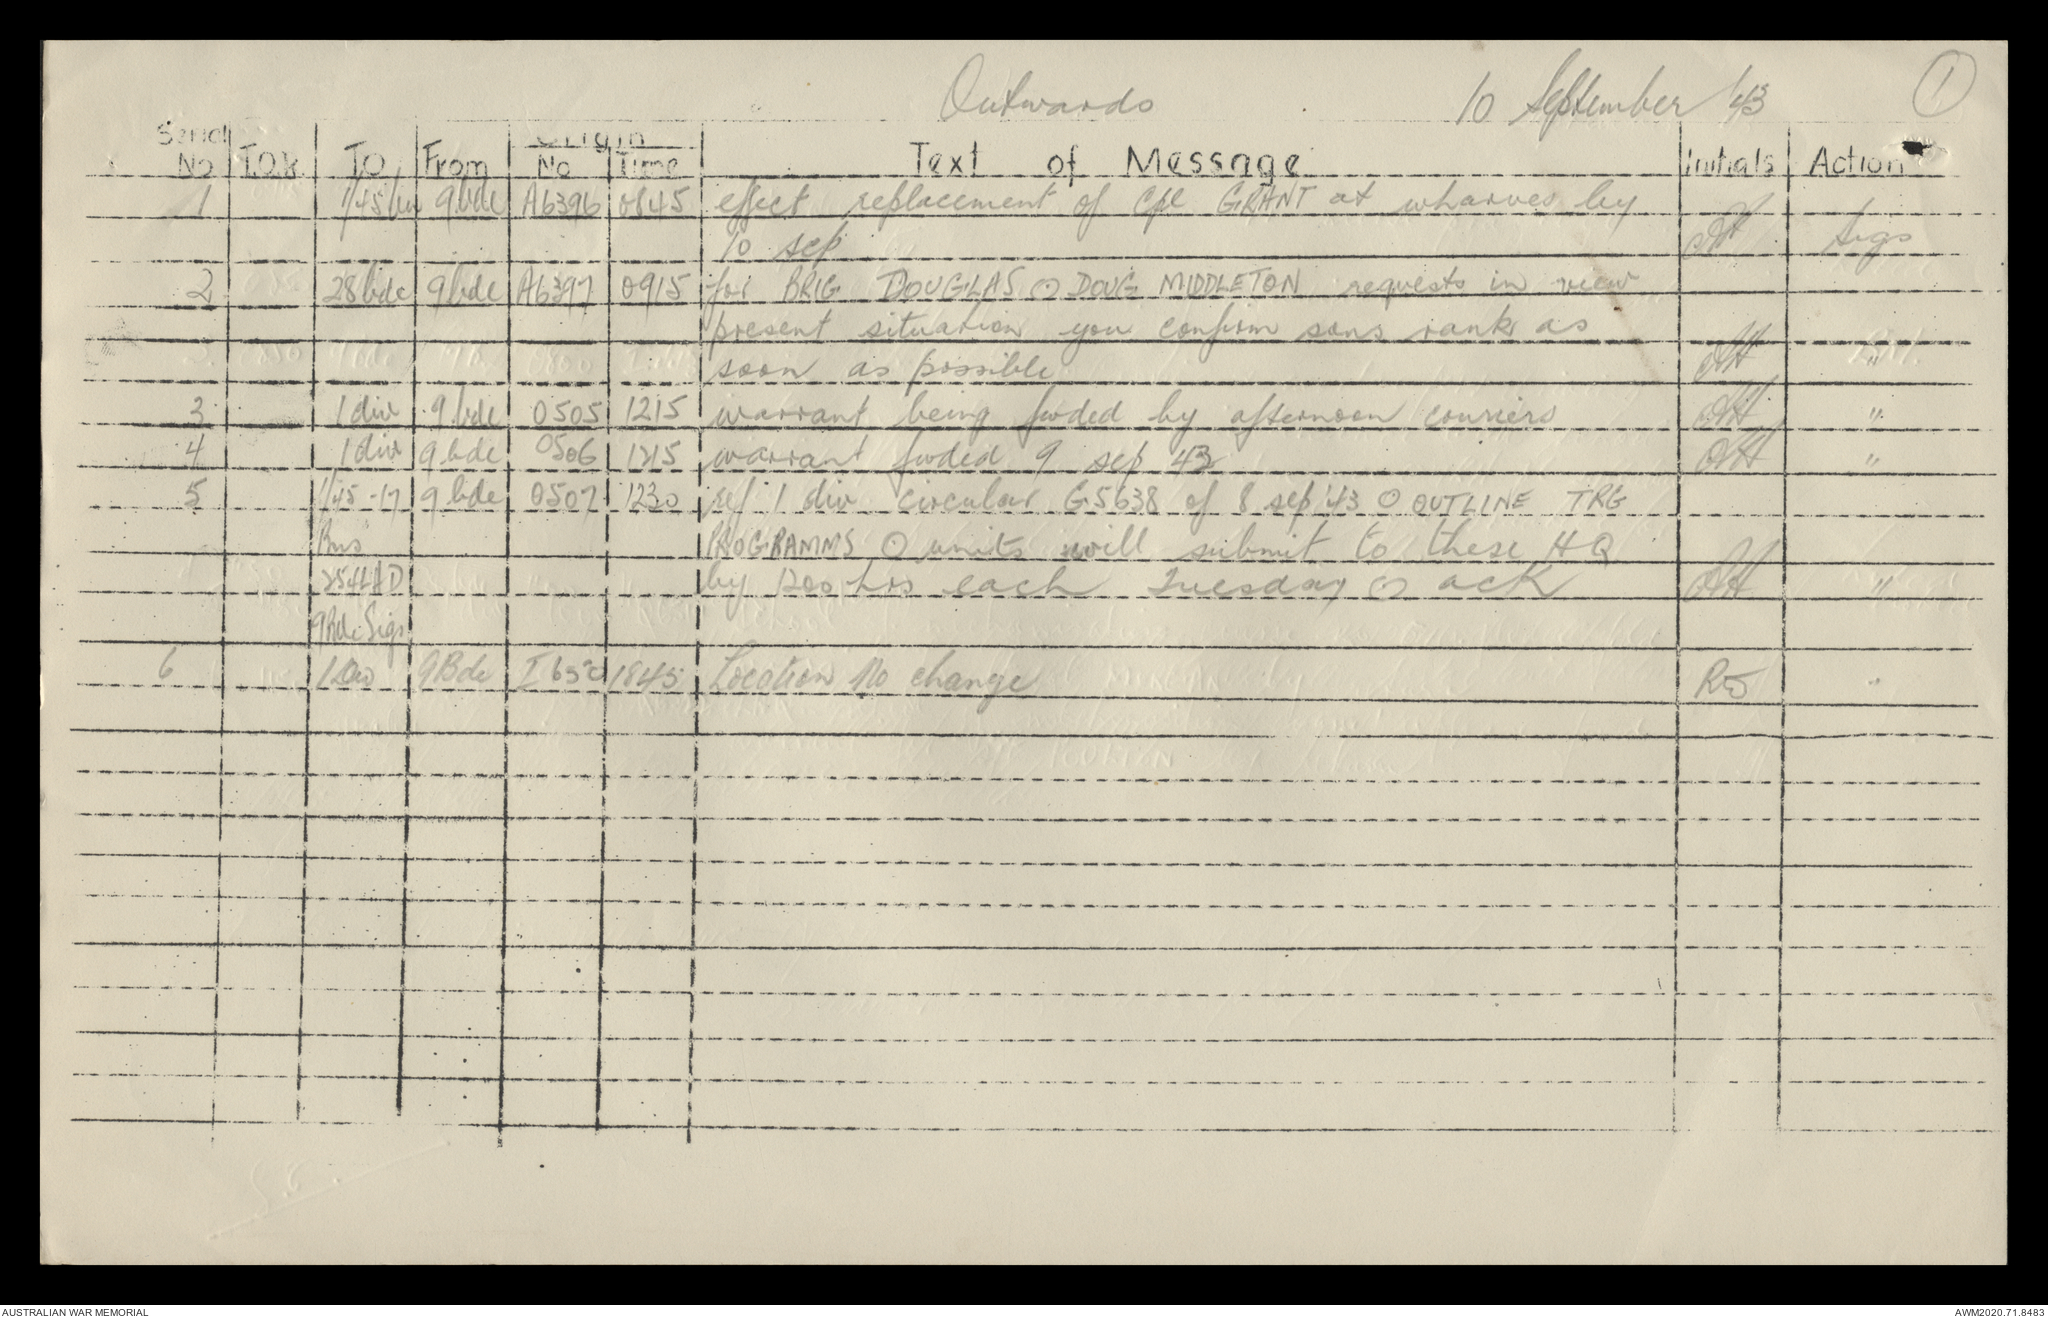 Outwards 10 September '43 1
Serial Origin
No T.O.R. To From No Time Text of Message Initials Action
1 1/45 bn 9 bde A6396 0845 effect replacement of Cpl GRANT at wharves by
10 sep Sigs
2 28 bde 9 bde A6397 0915 for BRIG DOUGLAS O DOUG MIDDLETON requests in view
present situation you confirm sons rank as
soon as possible "
3 1 div 9 bde 0505 1215 warrant being fwded by afternoon couriers "
4 1 div 9 bde 0506 1215 warrant fwded 9 sep 43 "
5 1/45-17 9 bde 0507 1230 ref 1 div circular G5638 of 8 sep '43 O OUTLINE TRG
Bns PROGRAMMS O units will submit to these HQ
254 LAD by 1200 hrs each Tuesday O ack "
9 Bde Sigs
6 1 Div 9 Bde I 650 1845 Location No change "
AUSTRALIAN WAR MEMORIAL AWM2020.71.8483